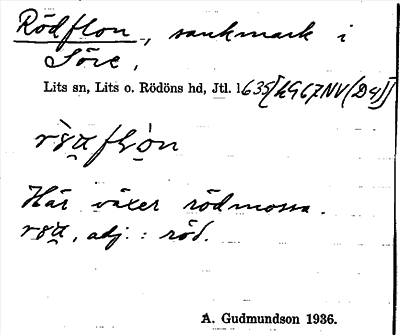 Rödflon, sankmark i
Söre,
Lits sn, Lits o. Rödöns hd, Jtl. 1635 [19G67NV(D4)]
Här växer rödmossa.
adj.: röd.
A. Gudmundson 1936.